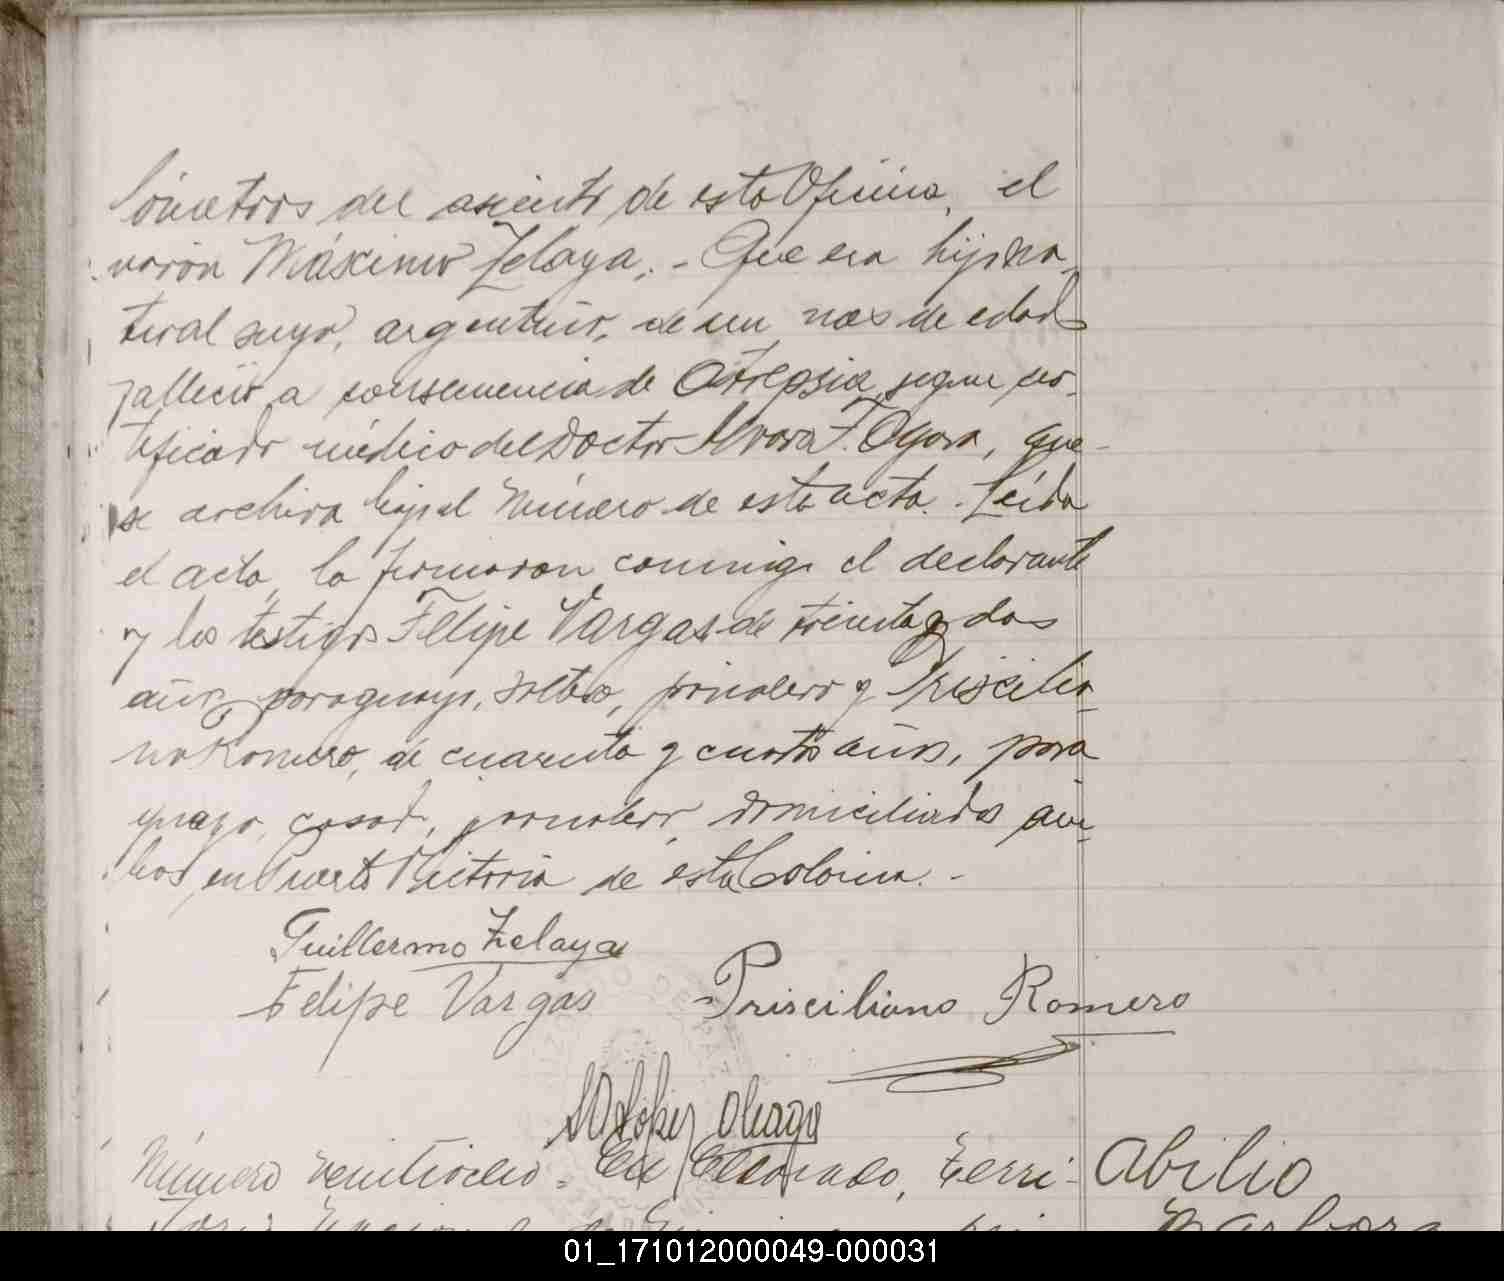 lómetros del asiento de esta Oficina, el
varón Máximo Zelaya. - Que era hijo na-
tural suyo, argentino, de un mes de edad
falleció a consecuencia de Atrepsia, segun cer-
tificado médico del Doctor Alvaro F. Ogara, que
se archiva bajo el número de esta acta. - Leída
el acta, la firmaron conmigo el declarante
y los testigos Felipe Vargas, de treinta y dos
años, paraguayo, soltero, jornalero y Priscilia-
no Romero, de cuarenta y cuatro años, para-
guayo, casado, jornalero, domiciliados am-
bos en Puerto Victoria de esta Colonia. -
Guillermo Zelaya
Felipe Vargas Prisciliano Romero
López
Número veintiocho. En Eldorado, Terri- Abilio
Barbora
01_171012000049-000031